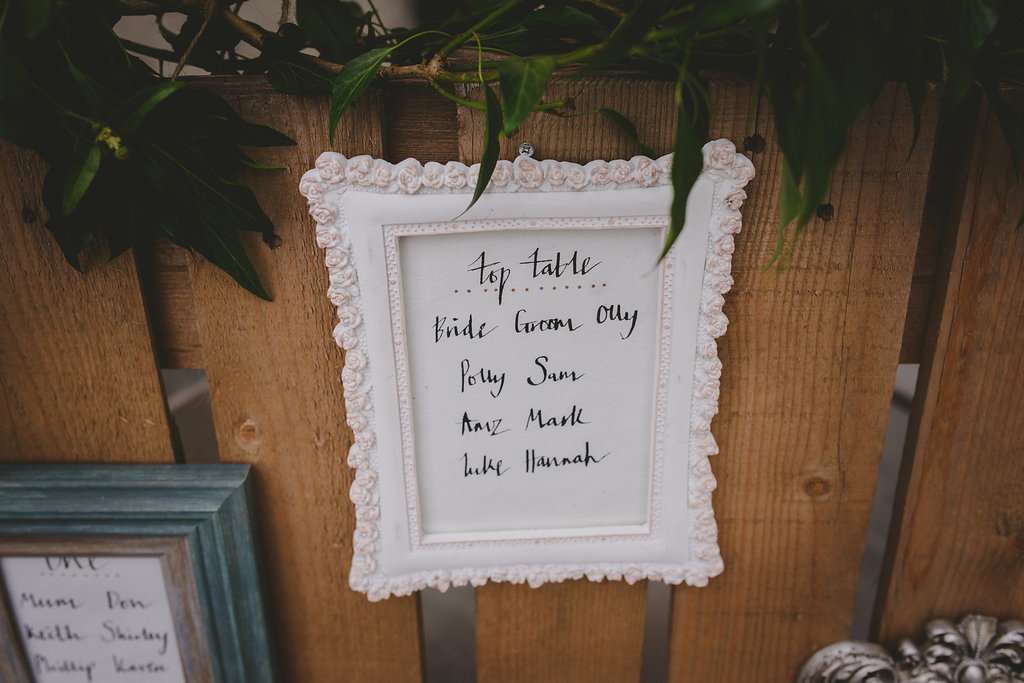 top table
Bride Groom Olly
Polly Sam
Amz Mark
Luke Hannah
one
Mum Don
Keith Shirley
Phillip Karen